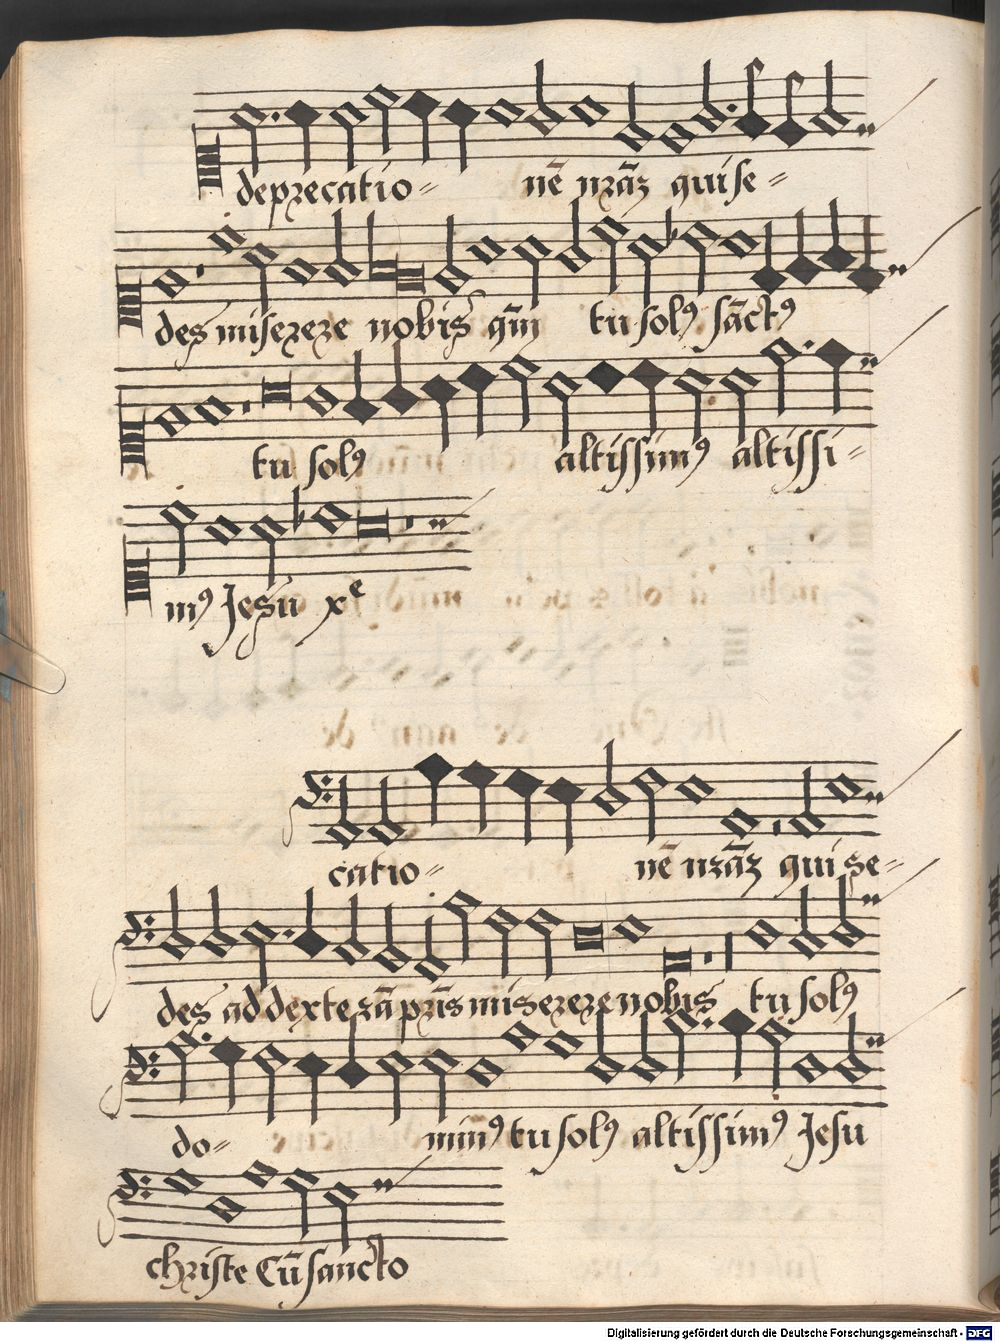 deprecatio- nē nr̄āꝫ qui se-
des miserere nobis qm̄ tu solꝰ sāctꝰ
tu solꝰ altissimꝰ altissi-
mꝰ Jesu xᵉ
catio- nē nr̄āꝫ qui se-
des ad dexterā pr̄is miserere nobis tu solꝰ
do- minꝰ tu solꝰ altissimꝰ Jesu
christe Cū sancto
Digitalisierung gefördert durch die Deutsche Forschungsgemeinschaft - DFG